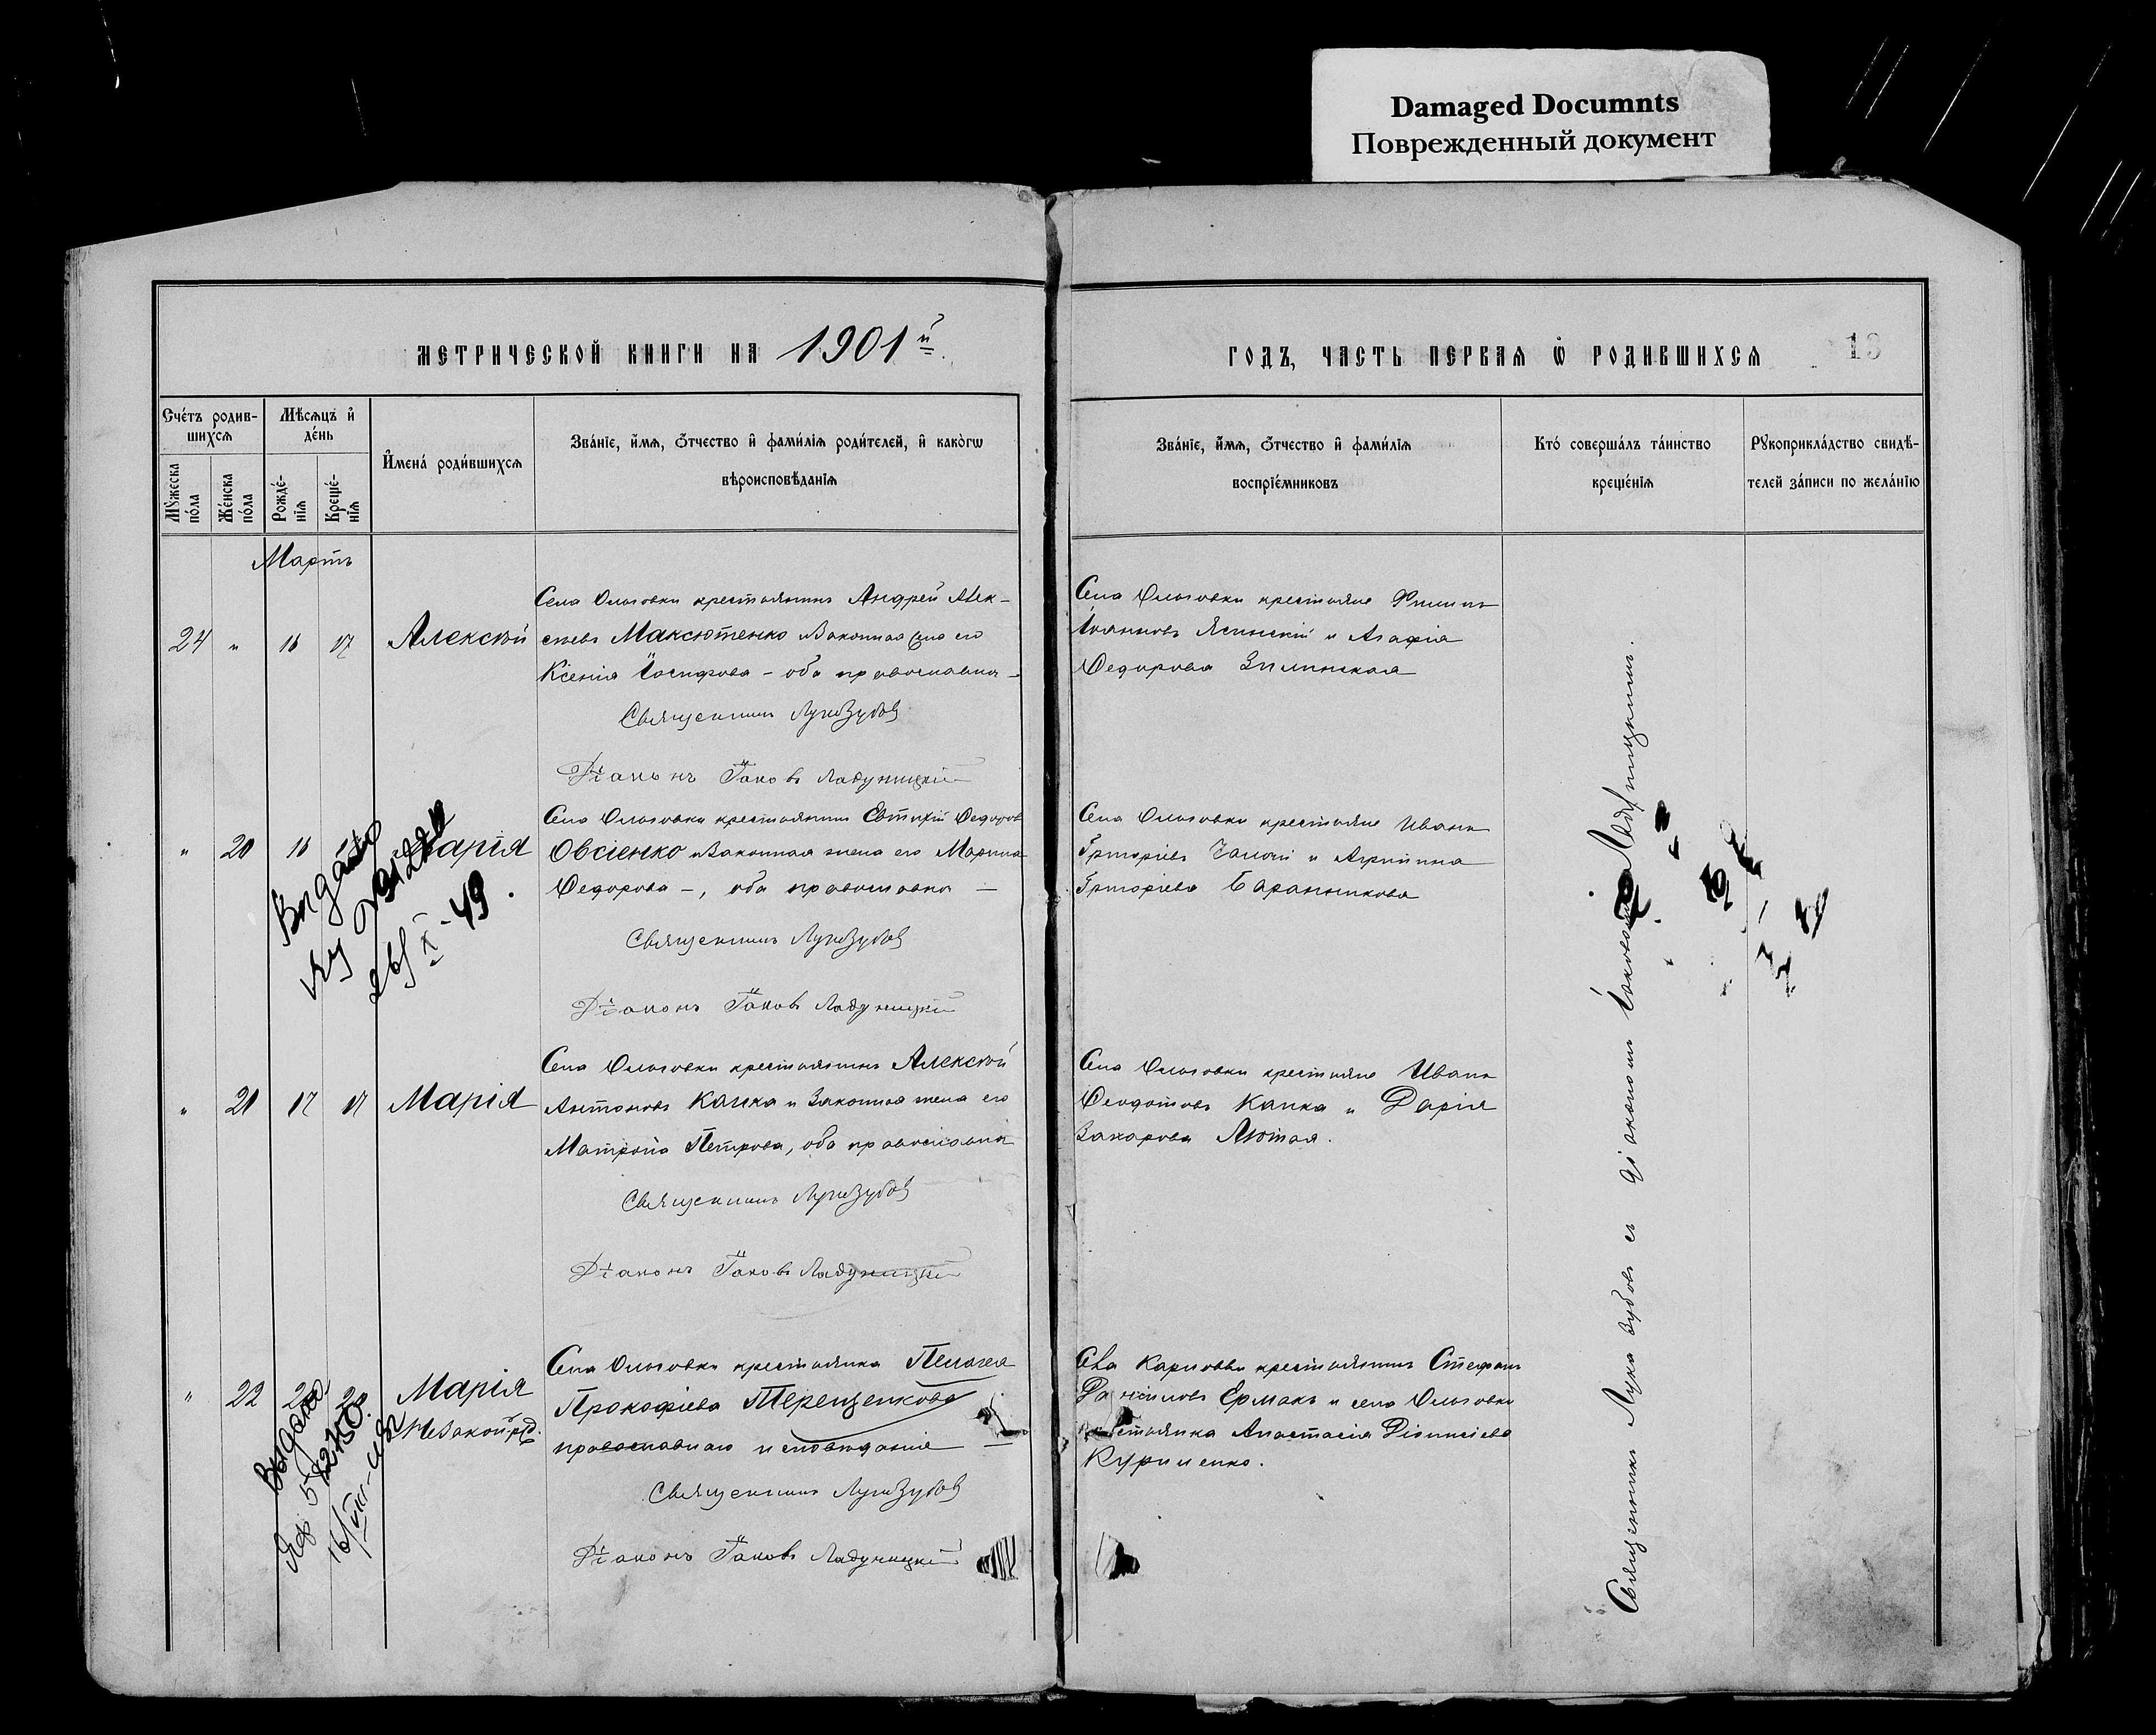 Damaged Documnts
Поврежденный документ
МЕТРИЧЕСКОЙ КНИГИ НА 1901 й.
ГОДЪ, ЧАСТЬ ПЕРВАЯ Ѡ РОДИВШИХСЯ
Счетъ родив-
шихся
Мѣсяцъ и
день
Мужеска
пола
Женска
пола
Рожде-
нія
Креще-
нія
Имена родившихся
Званіе, имя, отчество и фамилія родителей, и какогѡ
вѣроисповѣданія
Званіе, имя, отчество и фамилія
воспріемниковъ
Кто совершалъ таинство
крещенія
Рукоприкладство свидѣ-
телей записи по желанію
Мартъ
24 " 16 17 Алексѣй
Села Ольговки крестьянинъ Андрей Алек-
сѣевъ Максютенко и законная жена его
Ксенія Іосифова - оба православны -
Священникъ Лука Зубовъ
Діаконъ Іаковъ Ладуницкій
Села Ольговки крестьяне Филипъ
Іоанновъ Ясинскій и Агафія
Федорова Зилинская
" 20 16 Марія
Села Ольговки крестьянинъ Евтихій Федоровъ
Овсіенко и законная жена его Марина
Федорова -, оба православны -
Священникъ Лука Зубовъ
Діаконъ Іаковъ Ладуницкій
Села Ольговки крестьяне Иванъ
Григоріевъ и
Григоріева Баранникова
49.
" 21 17 17 Марія
Села Ольговки крестьянинъ Алексѣй
Антоновъ Капка и законная жена его
Матрона Петрова, оба православны
Священникъ Лука Зубовъ
Діаконъ Іаковъ Ладуницкій
Села Ольговки крестьяне Иванъ
Феодотовъ Капка и Дарія
Захарова Лютая.
" 22 Марія
Незакон. рожд.
Села Ольговки крестьянка Пелагея
Прокофіева Терещенкова
православнаго исповѣданія -
Священникъ Лука Зубовъ
Діаконъ Іаковъ Ладуницкій
Села Карповки крестьянинъ Стефанъ
Даніиловъ Ермакъ и села Ольговки
крестьянка Анастасія Діонисіева
Куриленко.
Выдано
Священникъ Лука Зубовъ съ діакономъ Іаковомъ Ладуницкимъ.